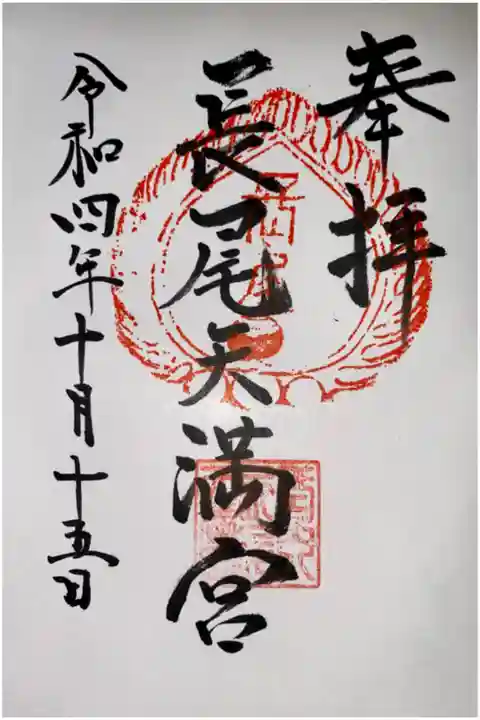 奉拝
長尾天満宮
令和四年十月十五日